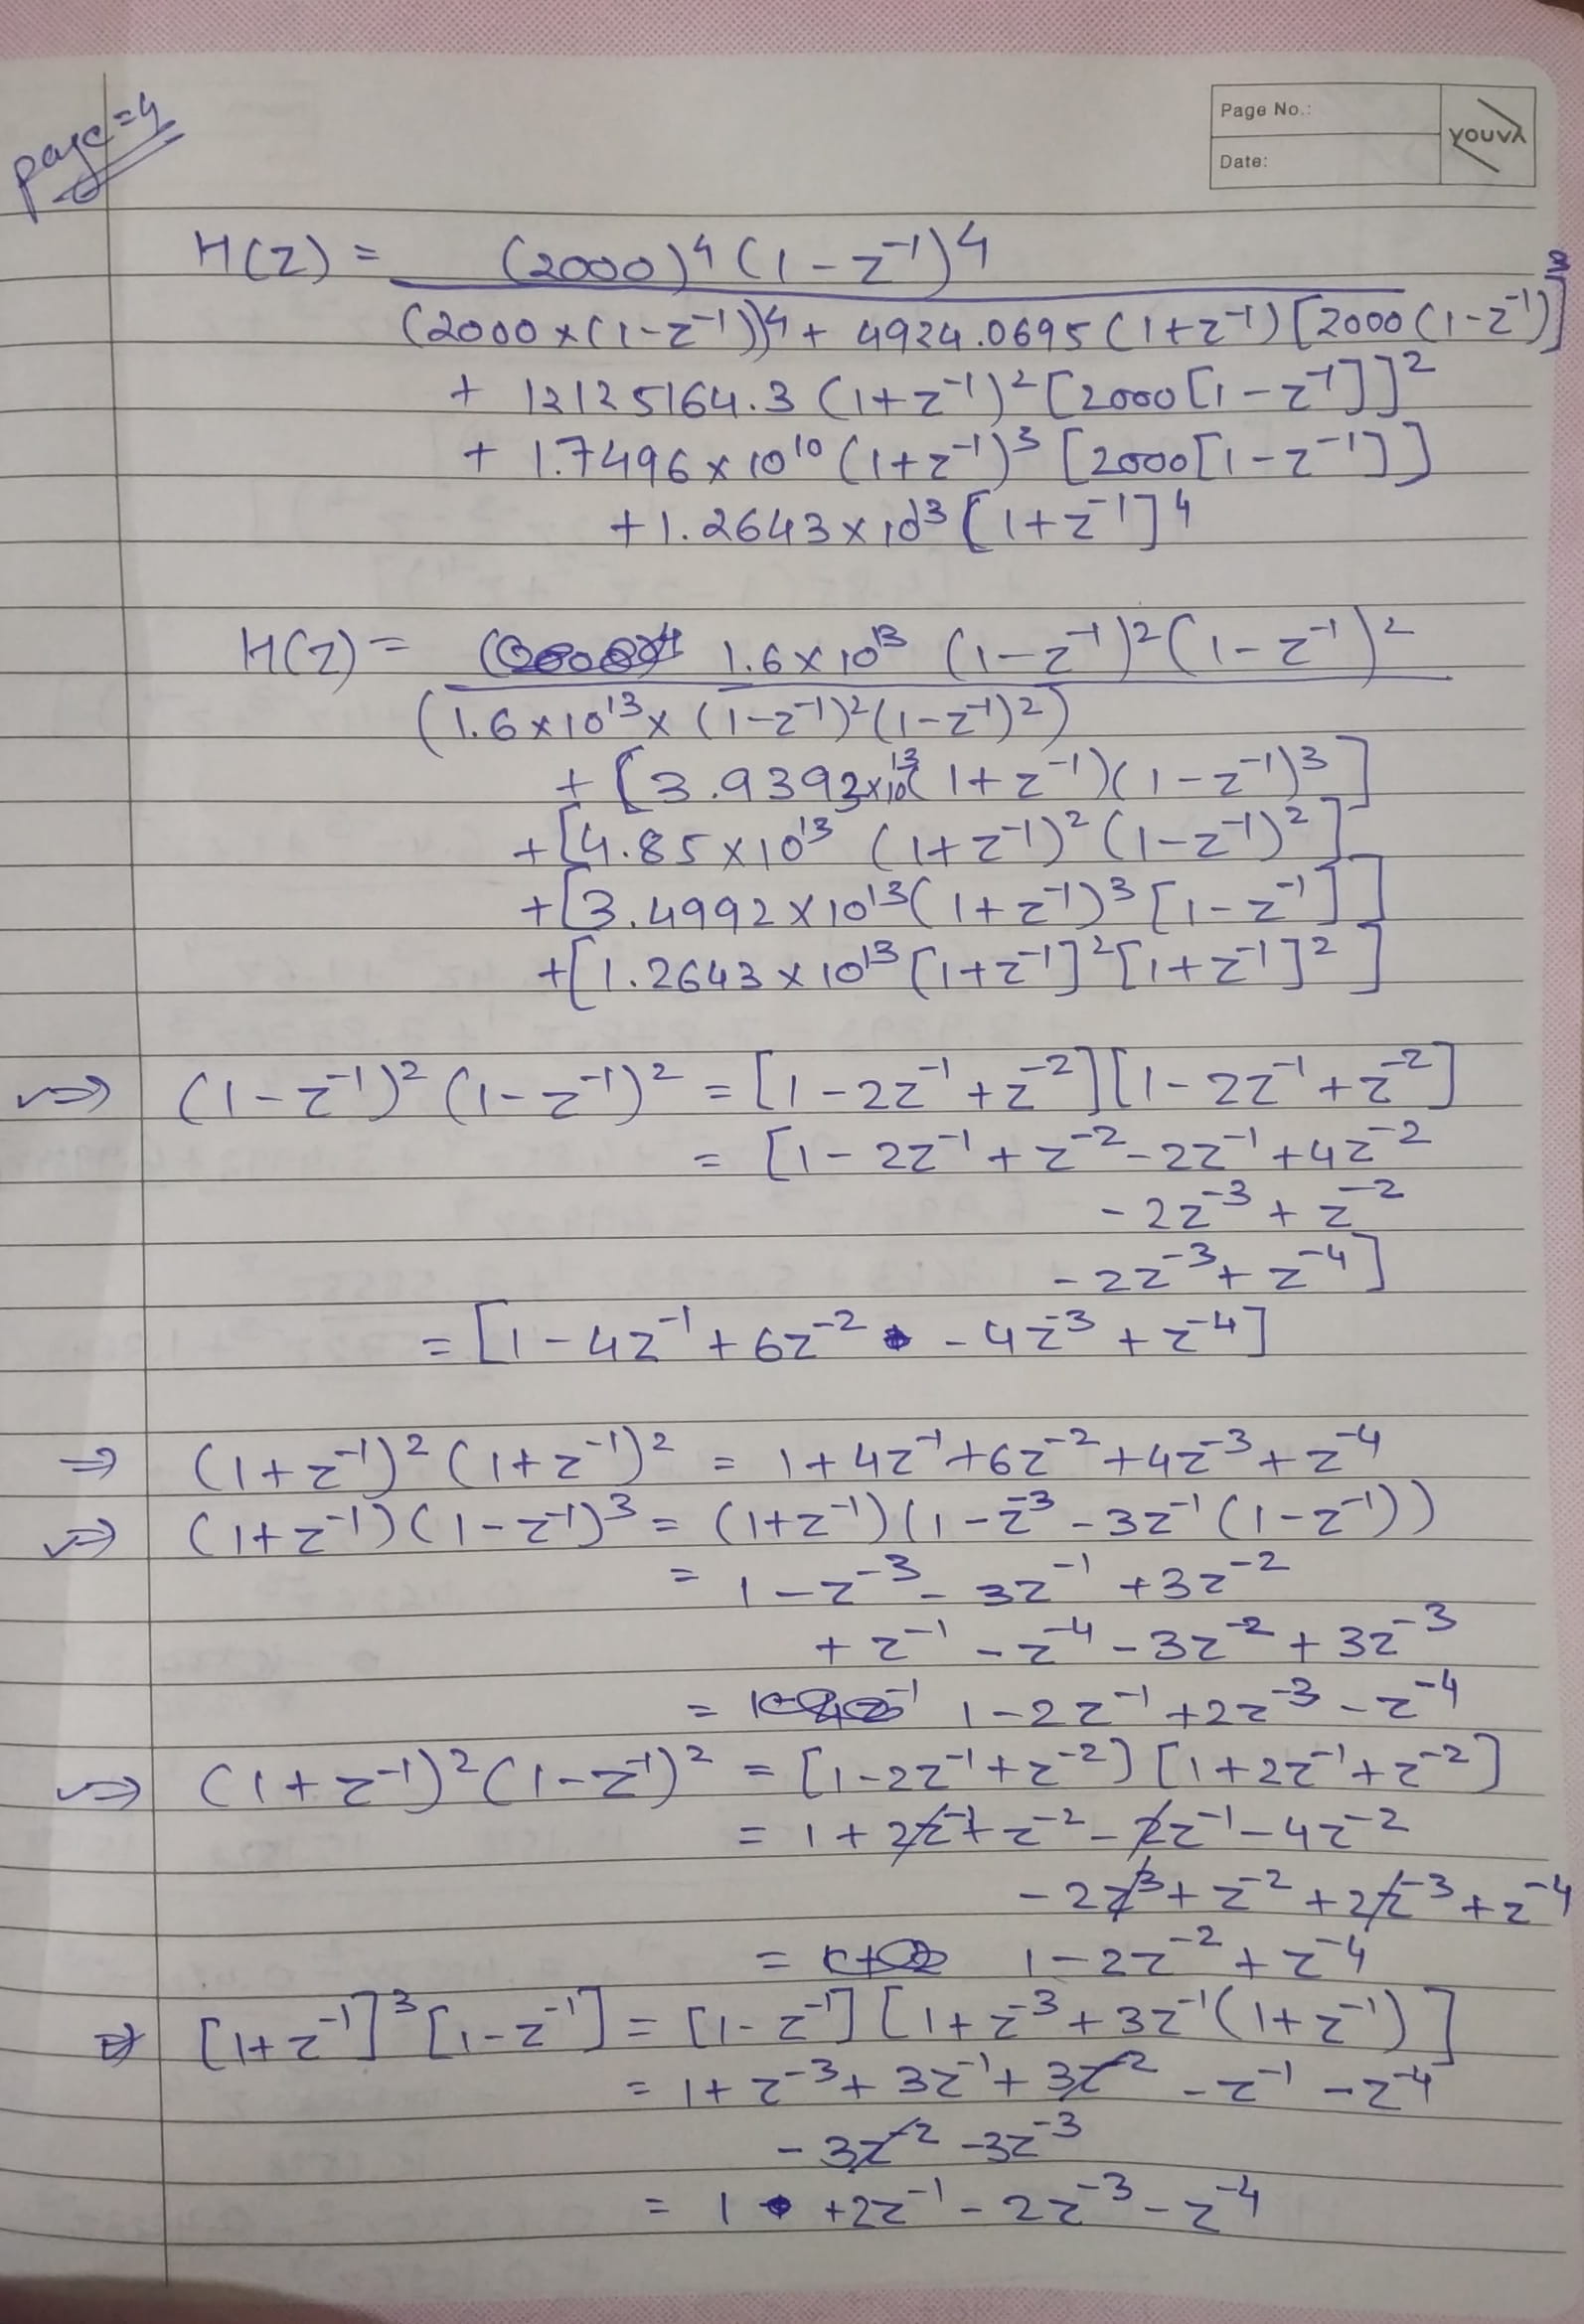 page=4
Page No.:
Date:
YOUVA
H(Z) = (2000)⁴ (1-z⁻¹)⁴
(2000×(1-z⁻¹))⁴ + 4924.0695 (1+z⁻¹) [2000(1-z⁻¹)]³
+ 12125164.3 (1+z⁻¹)² [2000[1-z⁻¹]]²
+ 1.7496×10¹⁰ (1+z⁻¹)³ [2000[1-z⁻¹]]
+1.2643×10¹³ [1+z⁻¹]⁴
H(Z) = 1.6×10¹³ (1-z⁻¹)² (1-z⁻¹)²
(1.6×10¹³× (1-z⁻¹)²(1-z⁻¹)²)
+ [3.9392×10¹³(1+z⁻¹)(1-z⁻¹)³]
+[4.85×10¹³ (1+z⁻¹)² (1-z⁻¹)²]
+[3.4992×10¹³(1+z⁻¹)³ [1-z⁻¹]]
+[1.2643×10¹³ [1+z⁻¹]²[1+z⁻¹]²]
⇒ (1-z⁻¹)² (1-z⁻¹)² = [1-2z⁻¹+z⁻²][1-2z⁻¹+z⁻²]
= [1-2z⁻¹+z⁻²-2z⁻¹+4z⁻²
-2z⁻³+z⁻²
-2z⁻³+z⁻⁴]
= [1-4z⁻¹+6z⁻² -4z⁻³+z⁻⁴]
⇒ (1+z⁻¹)² (1+z⁻¹)² = 1+4z⁻¹+6z⁻²+4z⁻³+z⁻⁴
⇒ (1+z⁻¹)(1-z⁻¹)³ = (1+z⁻¹)(1-z⁻³-3z⁻¹(1-z⁻¹))
= 1-z⁻³-3z⁻¹+3z⁻²
+z⁻¹-z⁻⁴-3z⁻²+3z⁻³
= 1-2z⁻¹+2z⁻³-z⁻⁴
⇒ (1+z⁻¹)²(1-z⁻¹)² = [1-2z⁻¹+z⁻²] [1+2z⁻¹+z⁻²]
= 1+2z⁻¹+z⁻²-2z⁻¹-4z⁻²
-2z⁻³+z⁻²+2z⁻³+z⁻⁴
= 1-2z⁻²+z⁻⁴
⇒ [1+z⁻¹]³[1-z⁻¹] = [1-z⁻¹] [1+z⁻³+3z⁻¹(1+z⁻¹)]
= 1+z⁻³+3z⁻¹+3z⁻²-z⁻¹-z⁻⁴
-3z⁻²-3z⁻³
= 1 +2z⁻¹-2z⁻³-z⁻⁴